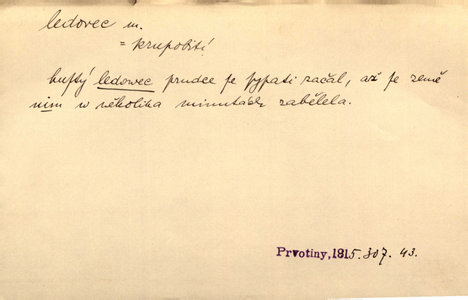 ledovec m.
= krupobití
hustý ledowec prudce se sypati začal, až se země
nim w několika minutách zabělela.
Prvotiny, 1815. 307. 43.